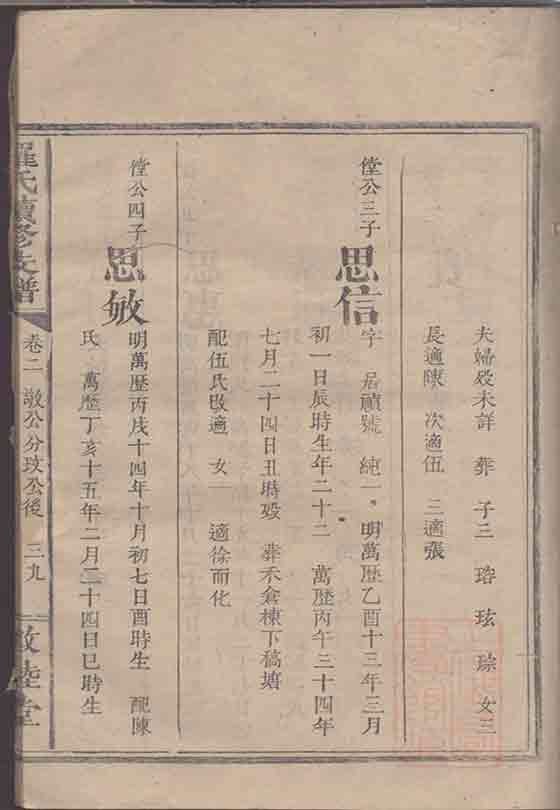 夫婦歿未詳 葬 子三 琣 玹 琮 女三
長適陳 次適伍 三適張
㼕公三子
思信
字 居禎號 純一 明萬歷乙酉十三年三月
初一日辰時生年二十二 萬歷丙午三十四年
七月二十四日丑時歿 葬禾倉棟下稿塘
配伍氏改適 女一 適徐而化
公四子
思敏
明萬歷丙戌十四年十月初七日酉時生 配陳
氏 萬歷丁亥十五年二月二十四日巳時生
羅氏續修支譜
卷二 敬公分玟公後 三九
敦睦堂